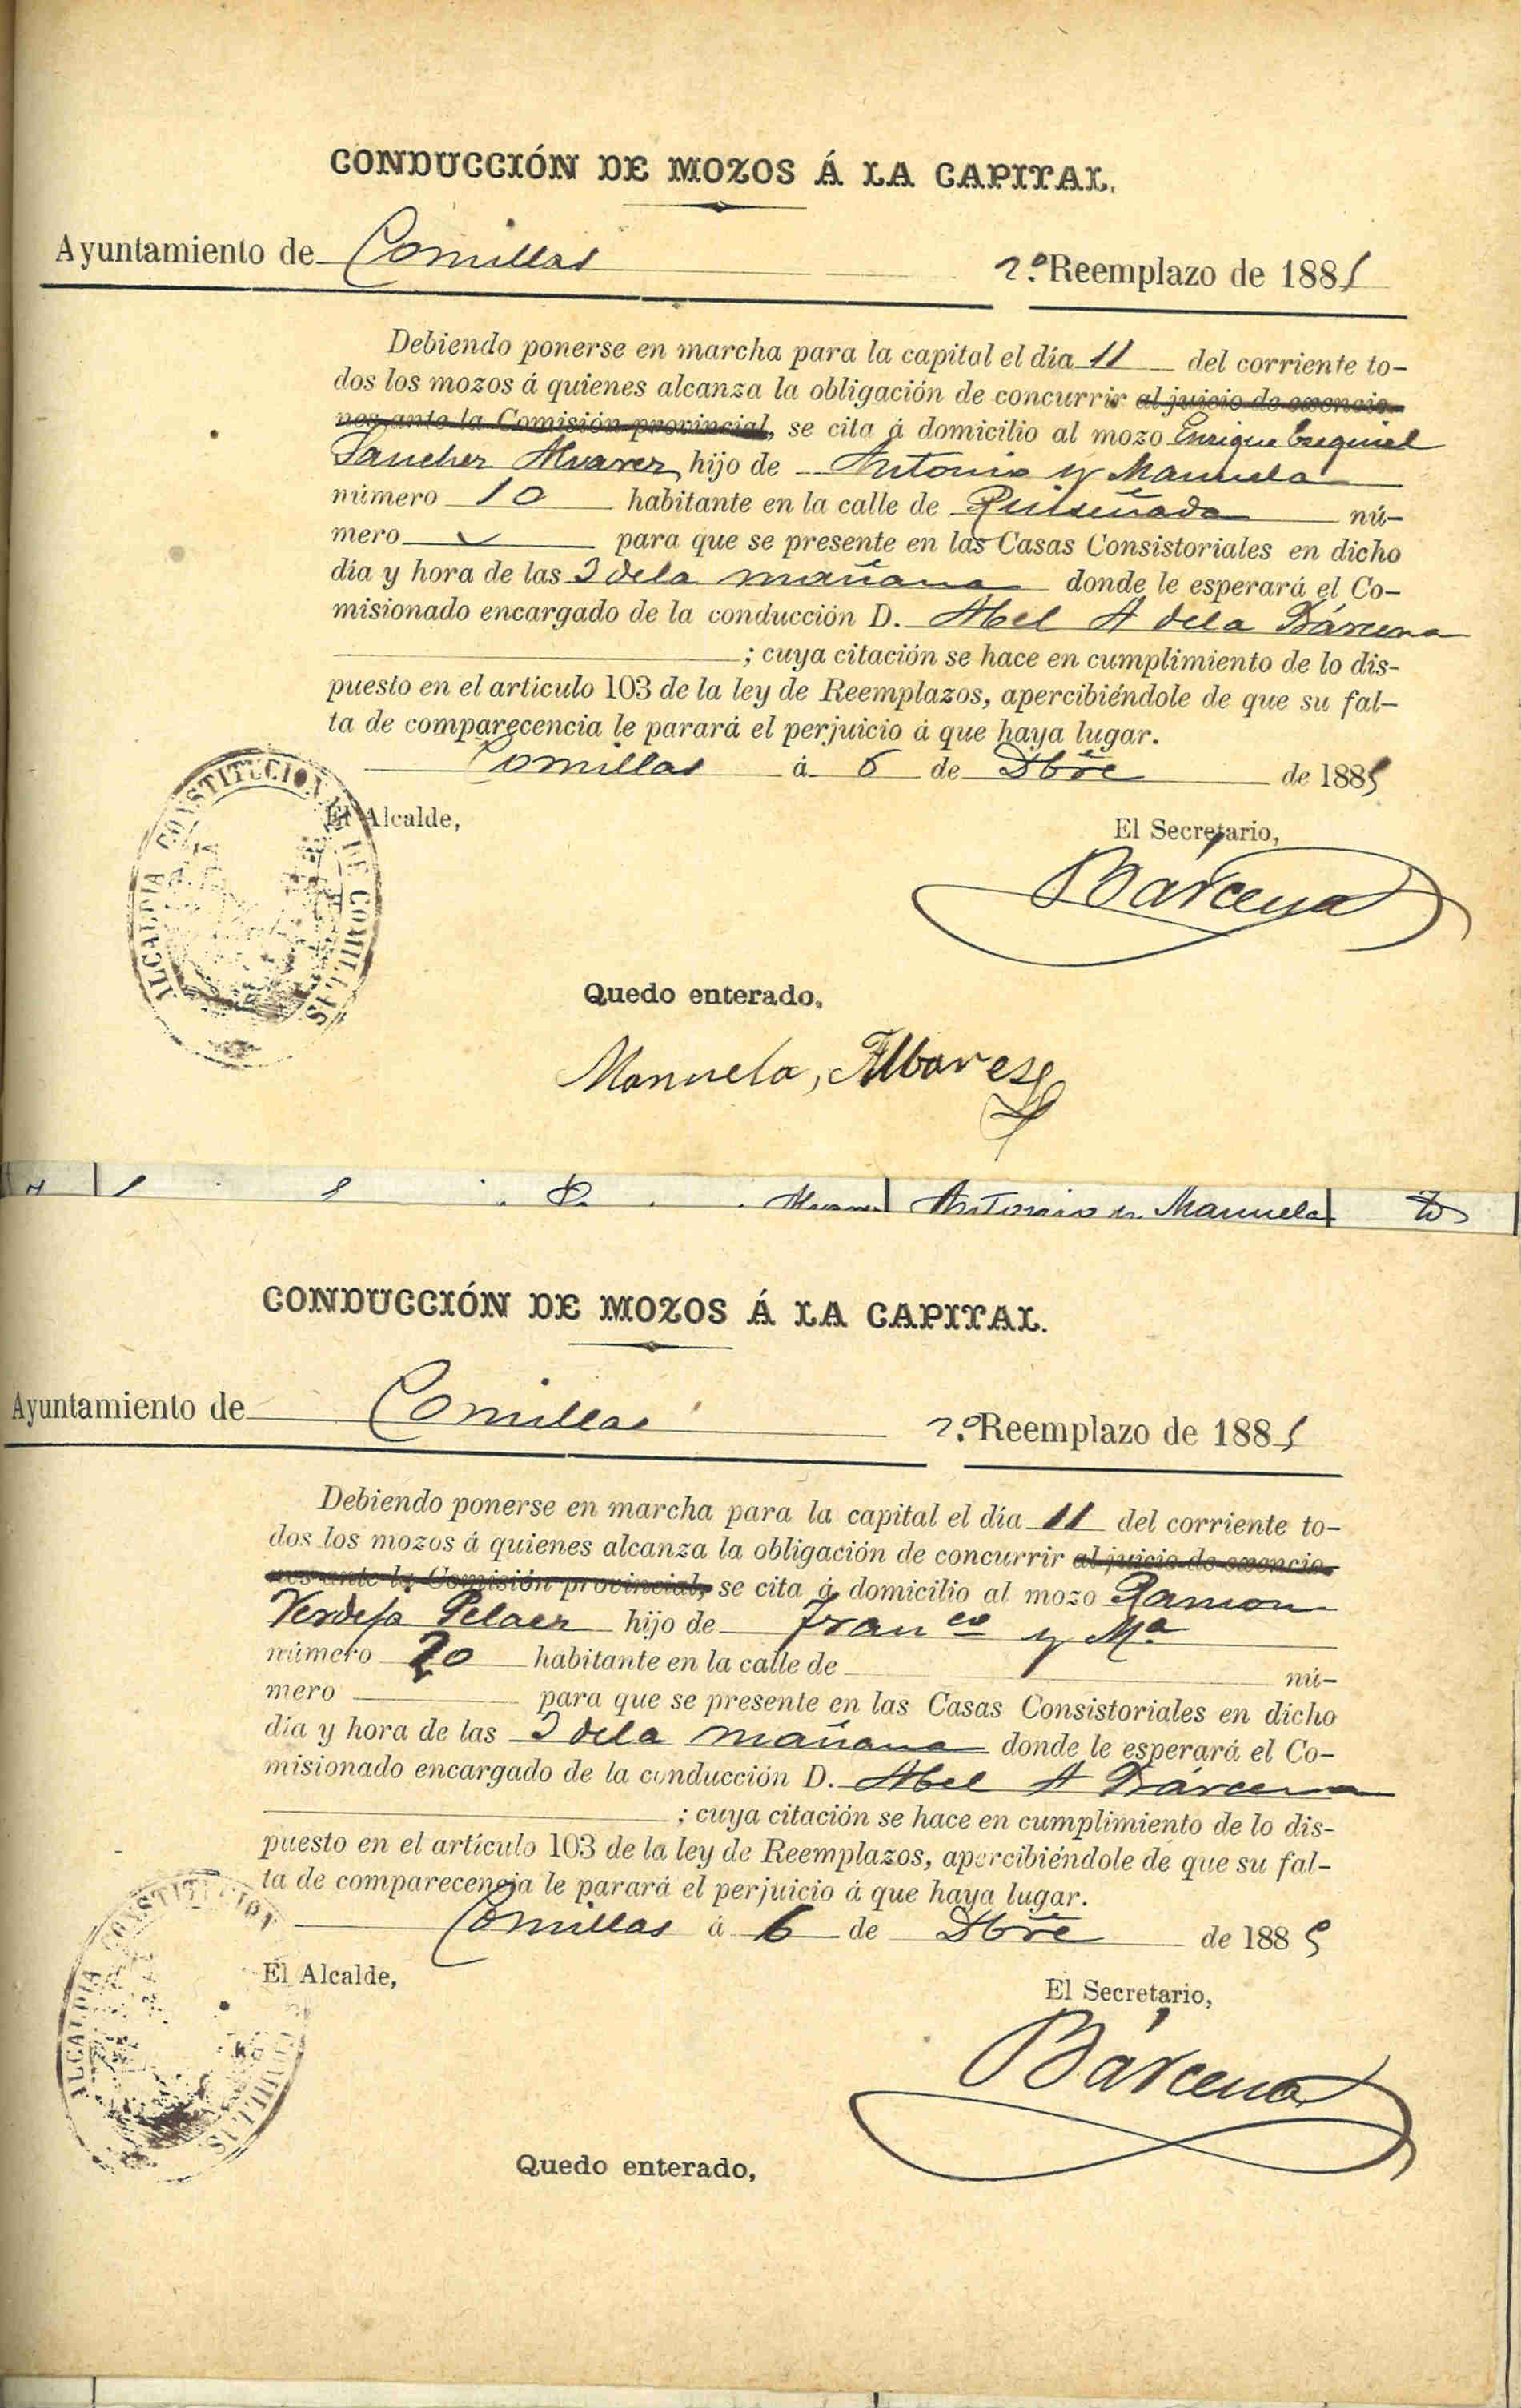 CONDUCCIÓN DE MOZOS Á LA CAPITAL.
Ayuntamiento de Comillas 2.º Reemplazo de 1885
Debiendo ponerse en marcha para la capital el día 11 del corriente to-
dos los mozos á quienes alcanza la obligación de concurrir al juicio de exencio-
nes ante la Comisión provincial, se cita á domicilio al mozo Enrique Ezequiel
Sanchez Alvarez hijo de Antonio y Manuela
número 10 habitante en la calle de Ruiseñada nú-
mero para que se presente en las Casas Consistoriales en dicho
día y hora de las 3 dela mañana donde le esperará el Co-
misionado encargado de la conducción D. Abel A dela Bárcena
; cuya citación se hace en cumplimiento de lo dis-
puesto en el artículo 103 de la ley de Reemplazos, apercibiéndole de que su fal-
ta de comparecencia le parará el perjuicio á que haya lugar.
Comillas á 6 de Dbre de 1885
El Alcalde,
El Secretario,
ALCALDIA CONSTITUCIONAL DE COMILLAS
Bárcena
Quedo enterado,
Manuela, Albarez
Alvarez Antonio y Manuela
CONDUCCIÓN DE MOZOS Á LA CAPITAL.
Ayuntamiento de Comillas 2.º Reemplazo de 1885
Debiendo ponerse en marcha para la capital el día 11 del corriente to-
dos los mozos á quienes alcanza la obligación de concurrir al juicio de exencio-
nes ante la Comisión provincial, se cita á domicilio al mozo Ramon
Verdeja Pelaez hijo de Franco y Ma
número 20 habitante en la calle de nú-
mero para que se presente en las Casas Consistoriales en dicho
día y hora de las 3 dela mañana donde le esperará el Co-
misionado encargado de la conducción D. Abel A Bárcena
; cuya citación se hace en cumplimiento de lo dis-
puesto en el artículo 103 de la ley de Reemplazos, apercibiéndole de que su fal-
ta de comparecencia le parará el perjuicio á que haya lugar.
Comillas á 6 de Dbre de 1885
El Alcalde,
El Secretario,
ALCALDIA CONSTITUCIONAL DE COMILLAS
Bárcena
Quedo enterado,